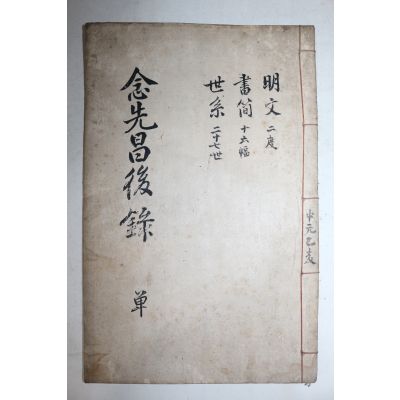 明文 二度
書簡 十六幅
世系 二十七世
念先昌後錄 単
中元己亥